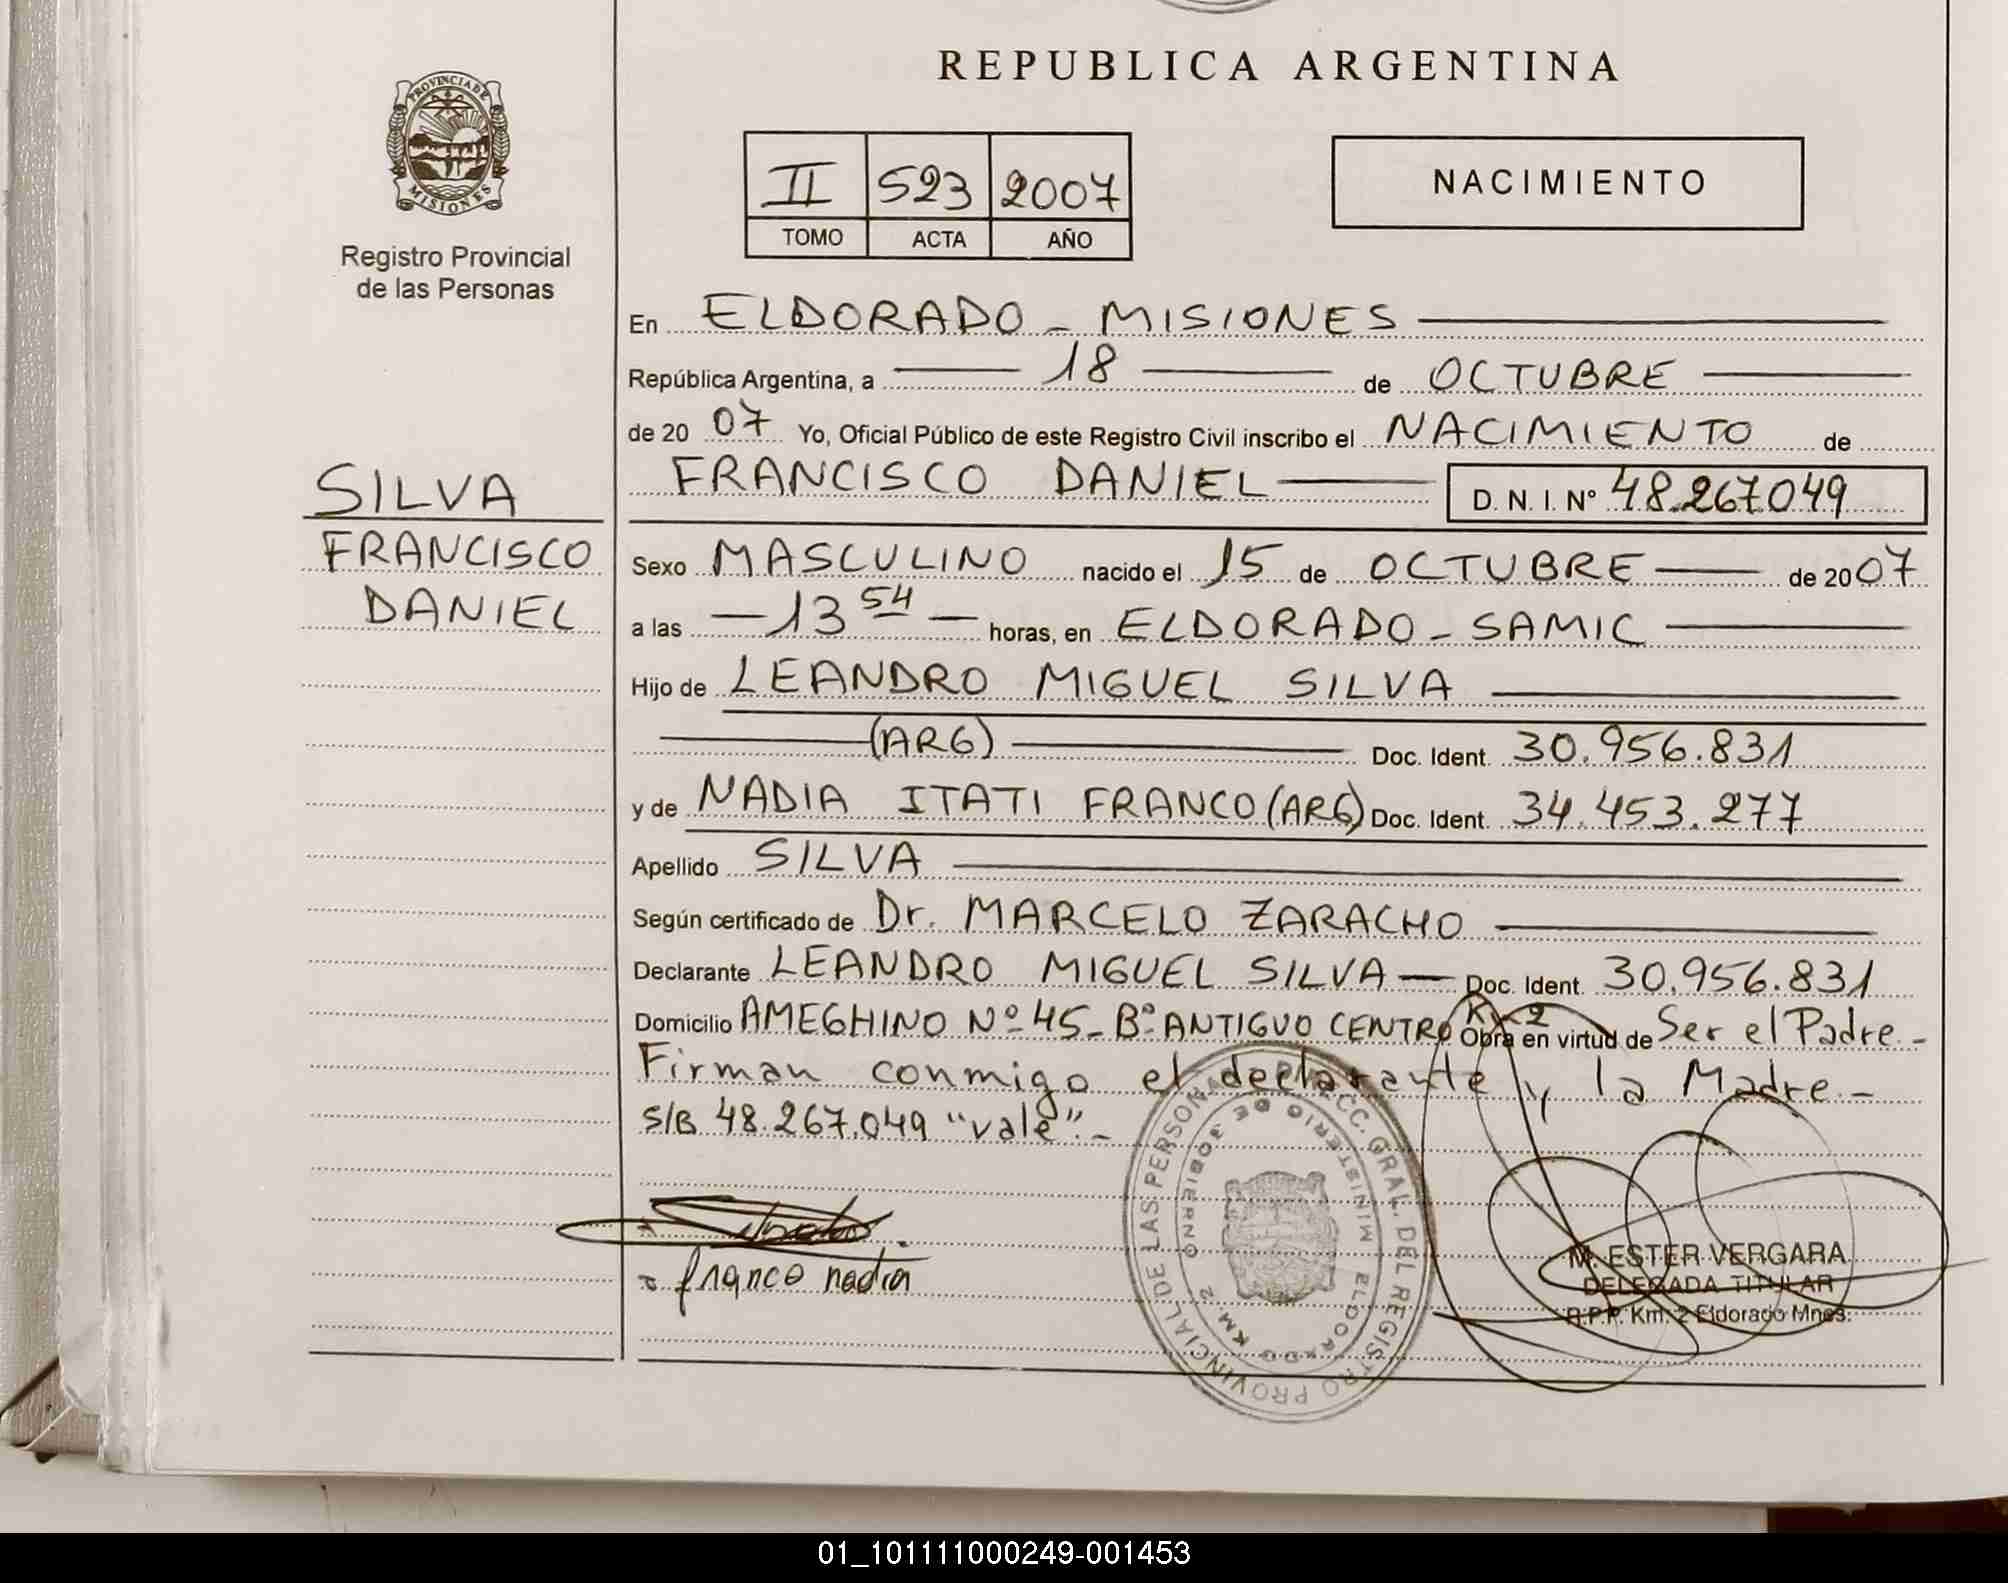 REPUBLICA ARGENTINA
PROVINCIA DE
MISIONES
Registro Provincial
de las Personas
II 523 2007
TOMO ACTA AÑO
NACIMIENTO
En ELDORADO - MISIONES
República Argentina, a 18 de OCTUBRE
de 2007 Yo, Oficial Público de este Registro Civil inscribo el NACIMIENTO de
FRANCISCO DANIEL D. N. I. Nº 48.267.049
SILVA
FRANCISCO
DANIEL
Sexo MASCULINO nacido el 15 de OCTUBRE de 2007
a las 13 54 horas, en ELDORADO - SAMIC
Hijo de LEANDRO MIGUEL SILVA
(ARG) Doc. Ident. 30.956.831
y de NADIA ITATI FRANCO (ARG) Doc. Ident. 34.453.277
Apellido SILVA
Según certificado de Dr. MARCELO ZARACHO
Declarante LEANDRO MIGUEL SILVA Doc. Ident. 30.956.831
Domicilio AMEGHINO Nº 45 - Bº ANTIGUO CENTRO Km 2 Obra en virtud de Ser el Padre.-
Firman conmigo el declarante y la Madre.-
S/B 48.267.049 "vale".-
franco nadia
GRAL. DEL REGISTRO PROVINCIAL DE LAS PERSONAS
MINISTERIO DE GOBIERNO
ELDORADO KM 2
M. ESTER VERGARA
DELEGADA TITULAR
R.P.P. Km. 2 Eldorado Mnes.
01_101111000249-001453